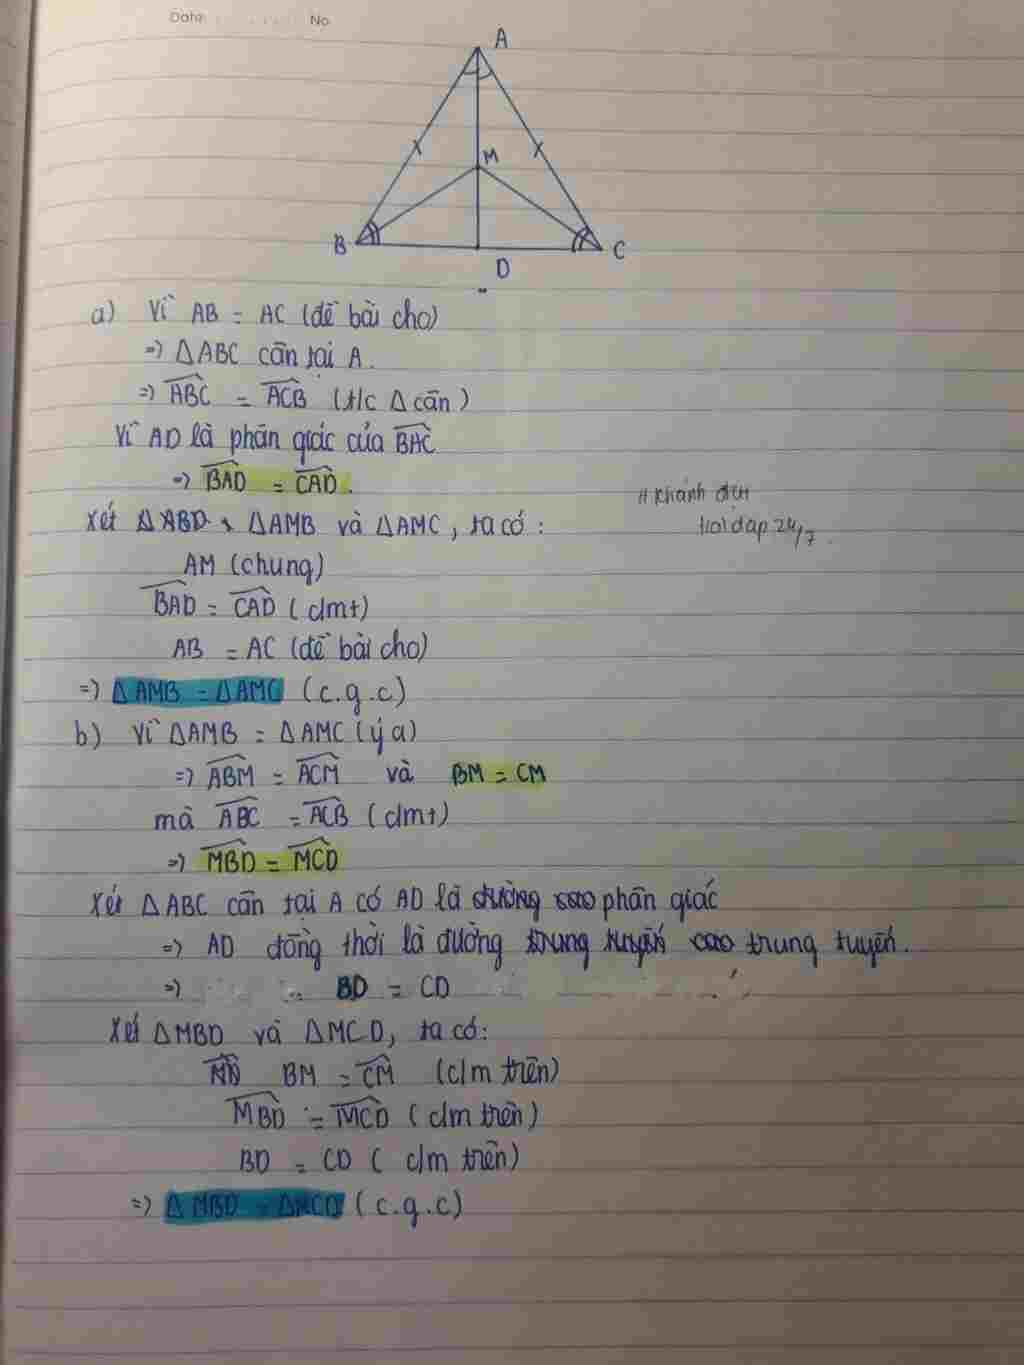 Date No
A
M
B
C
D
a) Vì AB = AC (đề bài cho)
=> ΔABC cân tại A.
=> ABC = ACB (t/c Δ cân)
Vì AD là phân giác của BAC
=> BAD = CAD.
# Khánh
hoidap 24/7
Xét ΔABD, ΔAMB và ΔAMC, ta có:
AM (chung)
BAD = CAD (cmt)
AB = AC (đề bài cho)
=> ΔAMB = ΔAMC (c.g.c)
b) Vì ΔAMB = ΔAMC (ý a)
=> ABM = ACM và BM = CM
mà ABC = ACB (cmt)
=> MBD = MCD
Xét ΔABC cân tại A có AD là đường cao phân giác
=> AD đồng thời là đường trung tuyến cao trung tuyến.
=> BD = CD
Xét ΔMBD và ΔMCD, ta có:
BM = CM (c/m trên)
MBD = MCD (c/m trên)
BD = CD (c/m trên)
=> ΔMBD = ΔMCD (c.g.c)